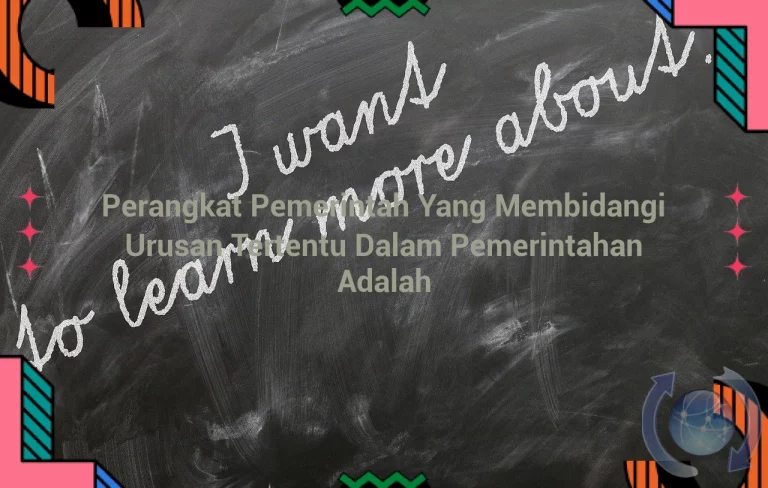 I want
to learn more about.
Perangkat Pemerintah Yang Membidangi
Urusan Tertentu Dalam Pemerintahan
Adalah